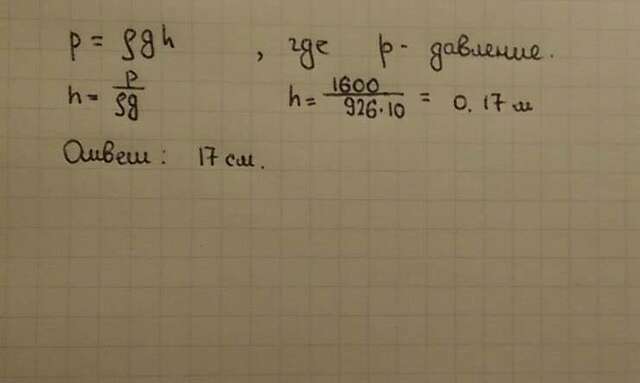 p = ρgh , где p - давление.
h = p/ρg h = 1600/926·10 = 0.17 м
Ответ: 17 см.